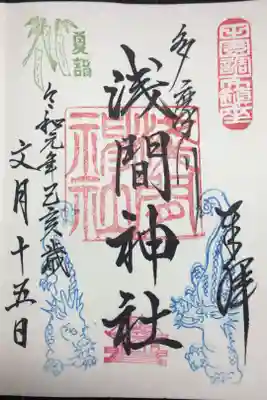 奉拝
多摩川
浅間神社
令和元年己亥歳
文月十五日
夏詣